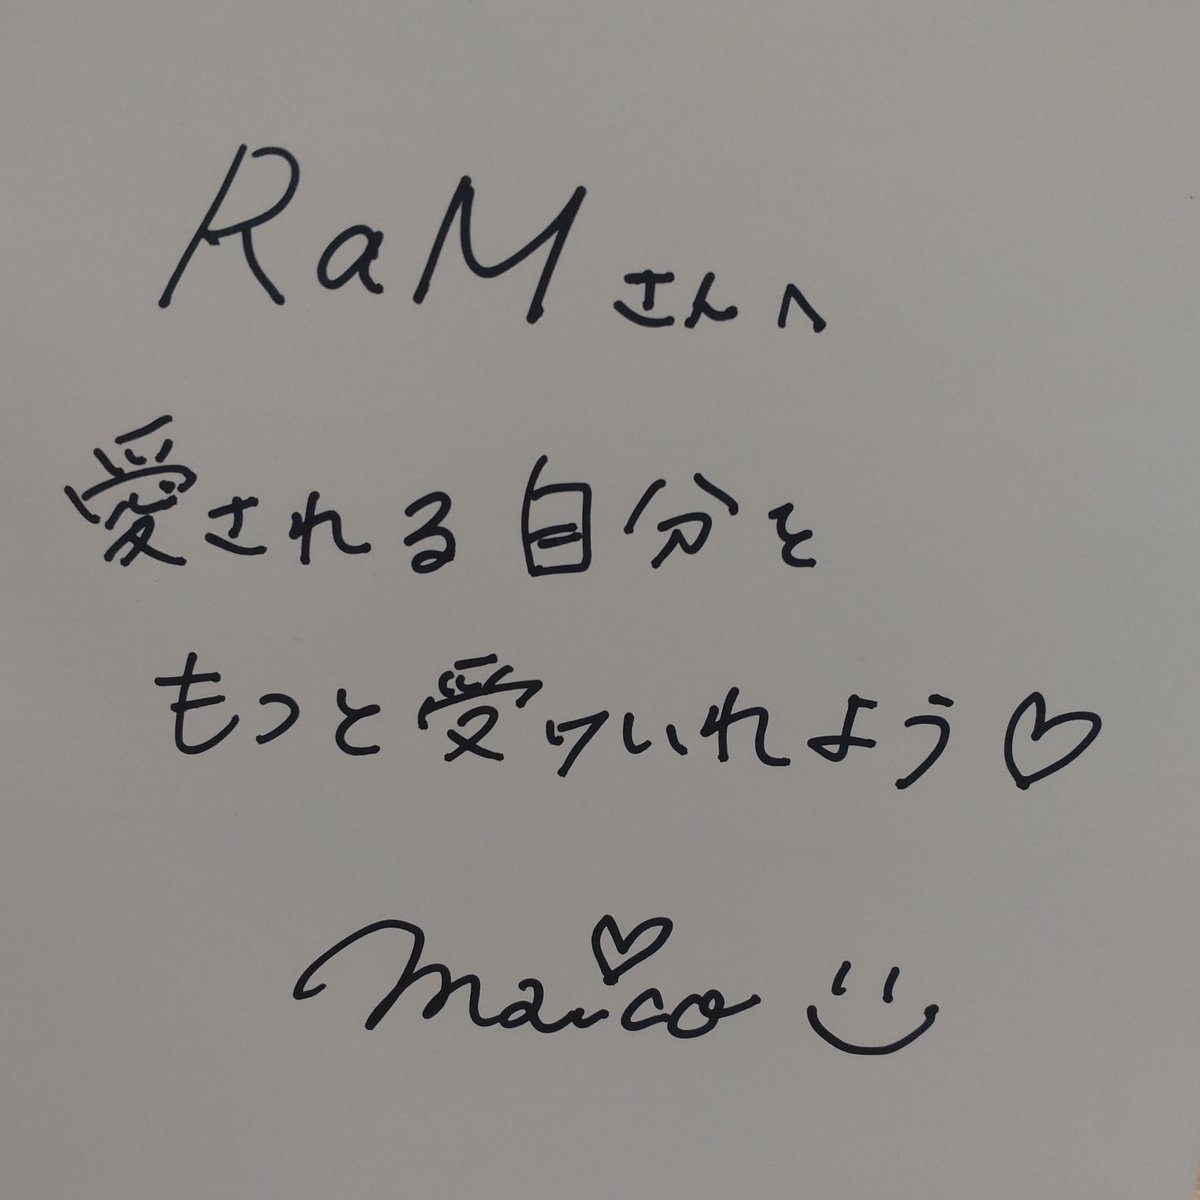 RaMさんへ
愛される自分を
もっと受けいれよう♡
maico